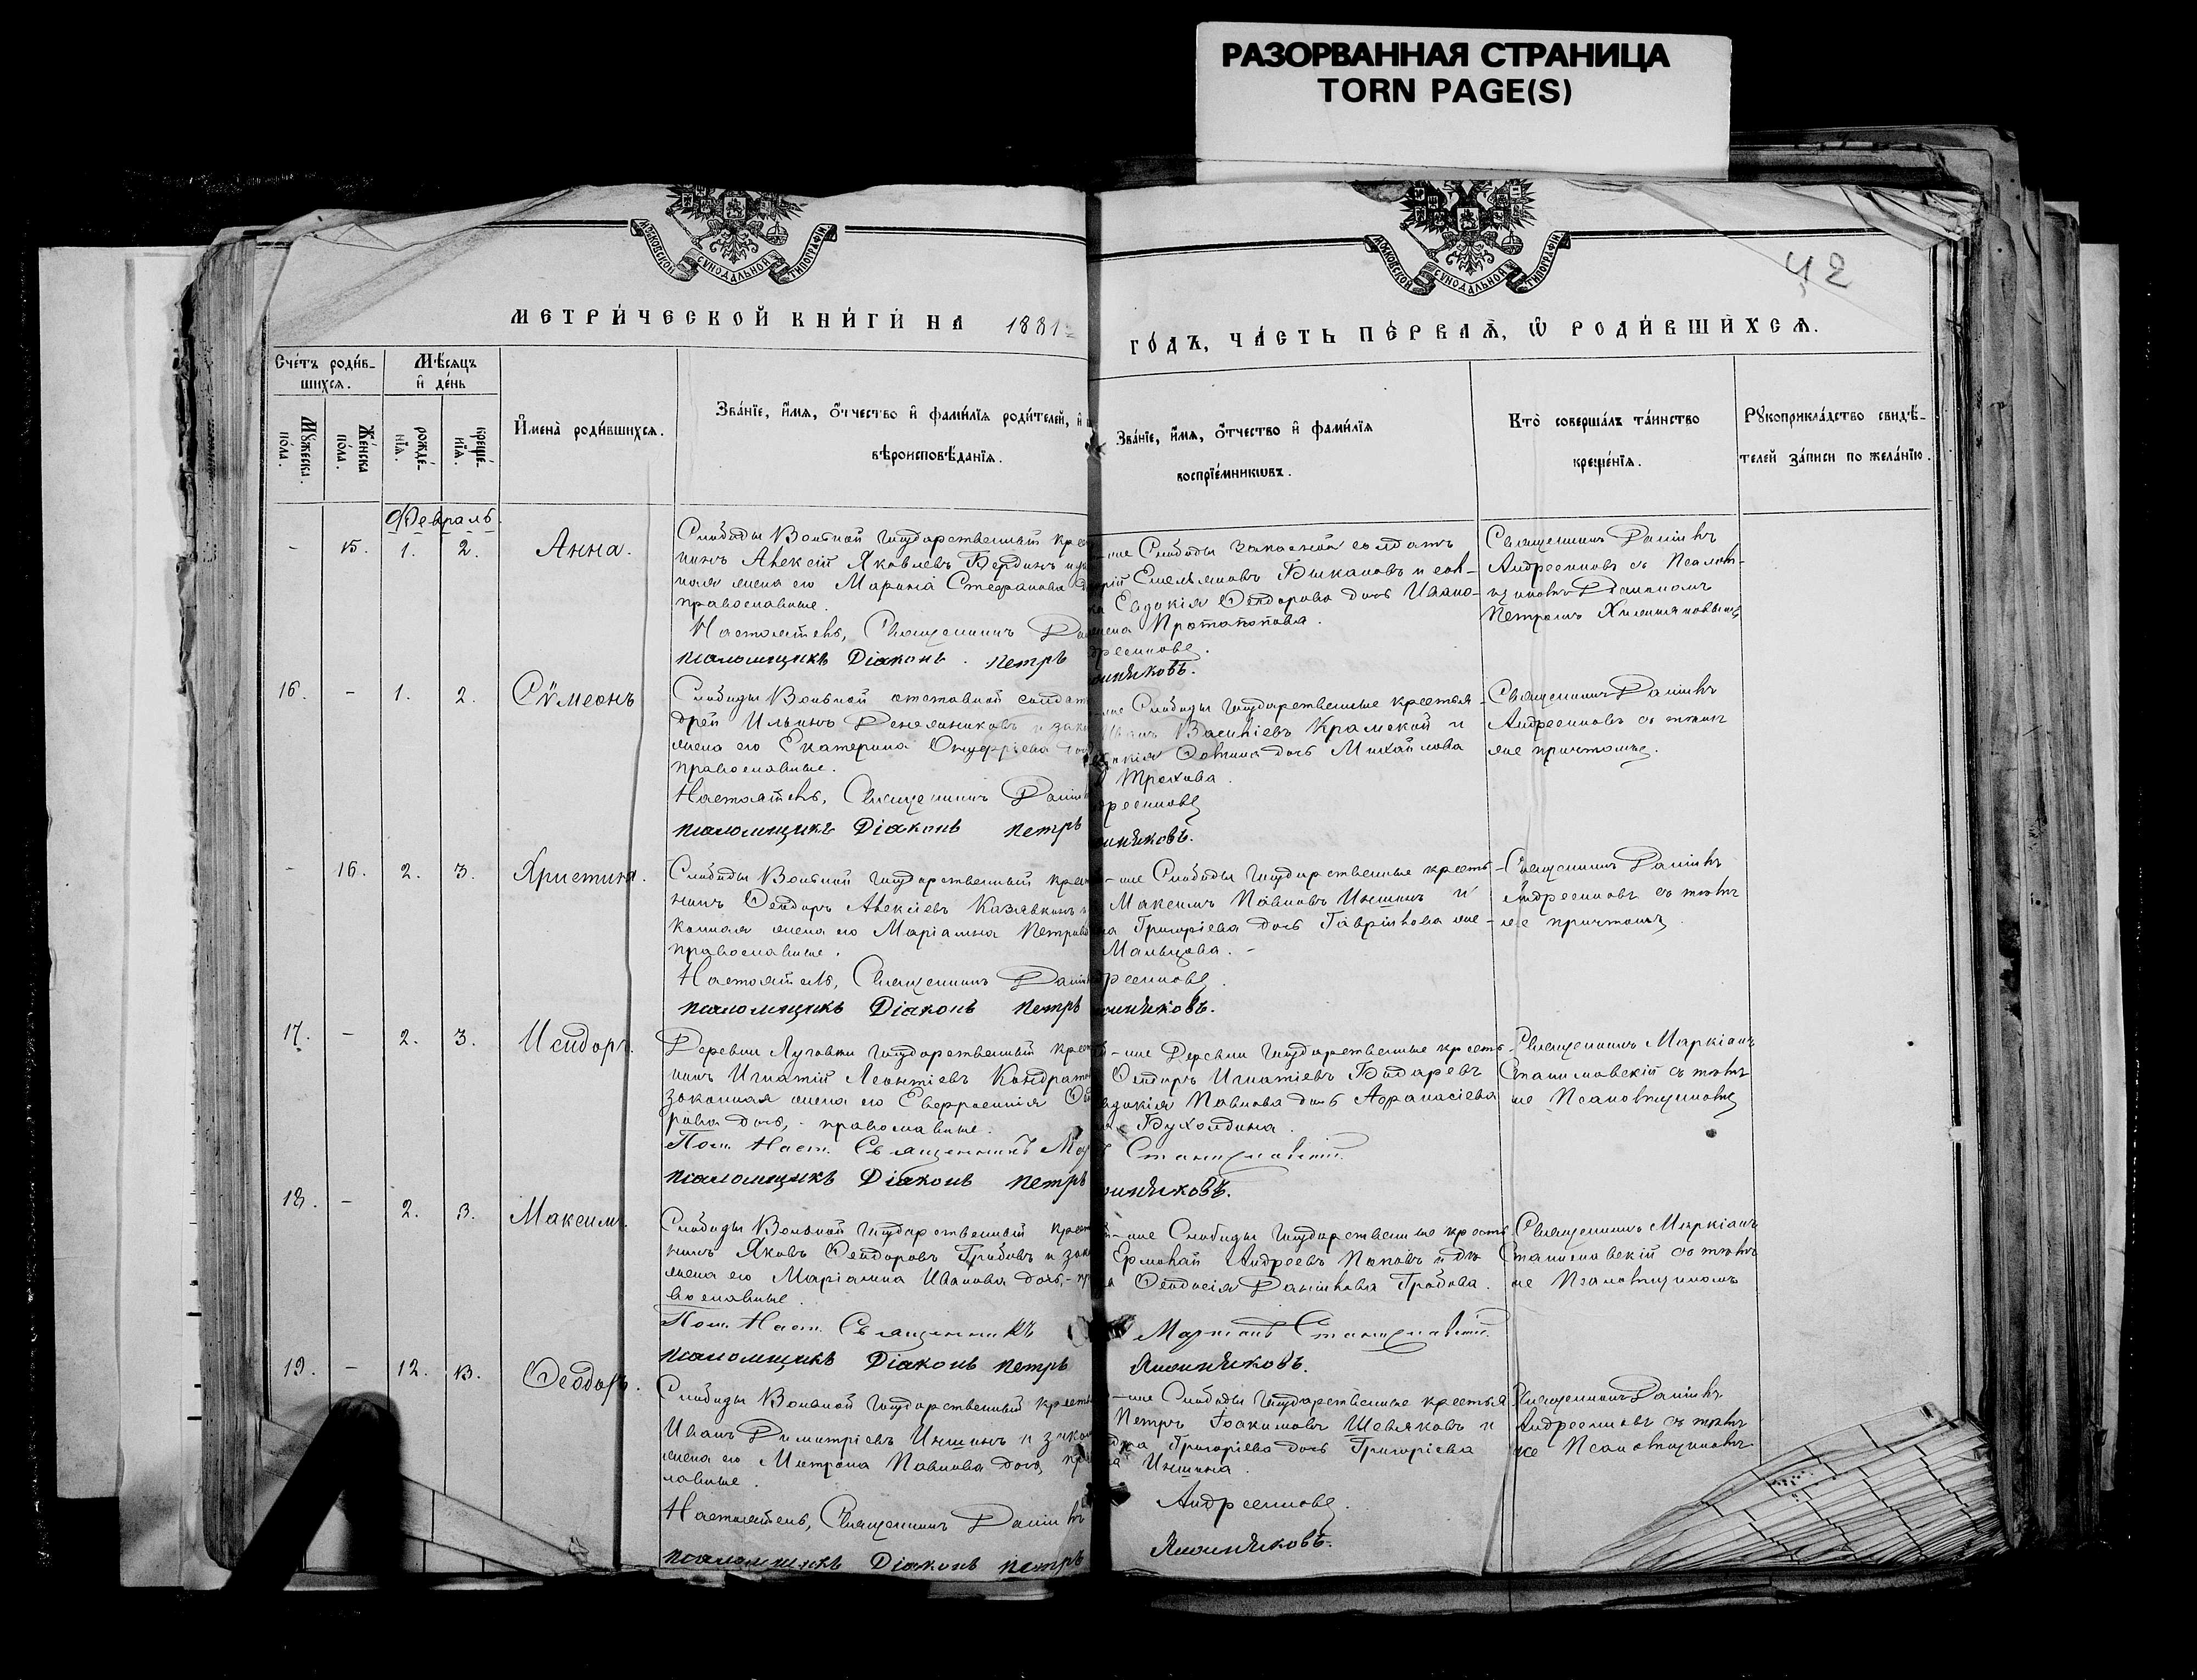 РАЗОРВАННАЯ СТРАНИЦА
TORN PAGE(S)
МОСКОВСКОЙ СѴНОДАЛЬНОЙ ТИПОГРАФІИ
МОСКОВСКОЙ СѴНОДАЛЬНОЙ ТИПОГРАФІИ
42
МЕТРИ́ЧЕСКОЙ КНИ́ГИ НА 1881
ГО́ДЪ, ЧА́СТЬ ПЕ́РВАѦ, Ѡ҆ РОДИ́ВШИХСѦ.
Сче́тъ роди́в-
шихсѧ.
Мѣ́сѧцъ
и҆ де́нь
Мꙋ́жеска по́ла.
Же́нска по́ла.
рожде́-нїѧ.
креще́-нїѧ.
И҆мена̀ роди́вшихсѧ.
Зва́нїе, и҆́мѧ, ѻ҆́тчество и҆ фами́лїѧ роди́телей, и҆
вѣроисповѣ́данїѧ.
Зва́нїе, и҆́мѧ, ѻ҆́тчество и҆ фами́лїѧ
воспрїе́мникѡвъ.
Кто̀ соверша́лъ та́инство
креще́нїѧ.
Рꙋкоприкла́дство свидѣ́-
телей за́писи по жела́нїю.
Февраль.
- 15. 1. 2. Анна.
Слободы Вольной Государственный крес
нинъ Алексій Яковлевъ Бердинъ и
жена его Марина Стефанова
православные.
Настоятель, Священникъ
псаломщикъ Діаконъ. Петръ
Слободы солдатъ
Емельяновъ Быкановъ и
Евдокія Ѳеодорова дочь Ивано-
жена Протопопова.
Священникъ Даніилъ
Андреенковъ съ Псалом-
щикомъ Діакономъ
Петромъ
16. - 1. 2. Сѵмеонъ
Слободы Вольной отставной солдат
дрей Ильинъ и зако
жена его Екатерина Онуфріева
православные.
Настоятель, Священникъ Даніил
псаломщикъ Діаконъ Петръ
Слободы Государственные крестья-
Иванъ Василіевъ Крамской и
дочь Михайлова
Священникъ Даніилъ
Андреенковъ съ тѣмъ
же причтомъ.
- 16. 2. 3. Христина.
Слободы Вольной Государственный крес
нинъ Ѳеодоръ Алексіевъ Казявкинъ
конная жена его Маріанна Петрова
православные.
Настоятель, Священникъ Даніил
псаломщикъ Діаконъ Петръ
Слободы Государственные кресть-
Максимъ Павловъ Иншинъ и
Григоріева дочь Гаврилова же-
Мальцева. -
Священникъ Даніилъ
Андреенковъ съ тѣмъ
же причтомъ.
17. - 2. 3. Исидоръ.
Деревни Луговки Государственный крес
нинъ Игнатій Леонтіевъ Кондрат
законная жена его Евфросинія Ѳе
рова дочь, - православные.
Пом. Наст. Священникъ Мар
псаломщикъ Діаконъ Петръ
Деревни Государственные кресть-
Ѳеодоръ Игнатіевъ
Павлова дочь Афанасіева
Станиславскій.
Священникъ Маркіанъ
Станиславскій съ тѣмъ
же Псаломщикомъ
18. - 2. 3. Максимъ.
Слободы Вольной Государственный крес
нинъ Яковъ Ѳеодоровъ Грибовъ и зако
жена его Маріанна Иванова дочь, - пра
вославные.
Пом. Наст. Священникъ
псаломщикъ Діаконъ Петръ
Слободы Государственные кресть
Ермолай Андреевъ Поповъ и
Ѳеодосія Даніилова Грибова.
Маркіанъ Станиславскій.
Священникъ Маркіанъ
Станиславскій съ тѣмъ
же Псаломщикомъ
19. - 12. 13. Ѳеодоръ.
Слободы Вольной Государственный кресть
Иванъ Димитріевъ Иншинъ и закон
жена его Митрона Павлова дочь, пра
лавные.
Настоятель, Священникъ Даніилъ
псаломщикъ Діаконъ Петръ
Слободы Государственные крестья
Петръ Іоакимовъ Шевляковъ и
Григоріева дочь Григоріева
Иншина.
Андреенковъ.
Священникъ Даніилъ
Андреенковъ съ тѣмъ
же Псаломщикомъ